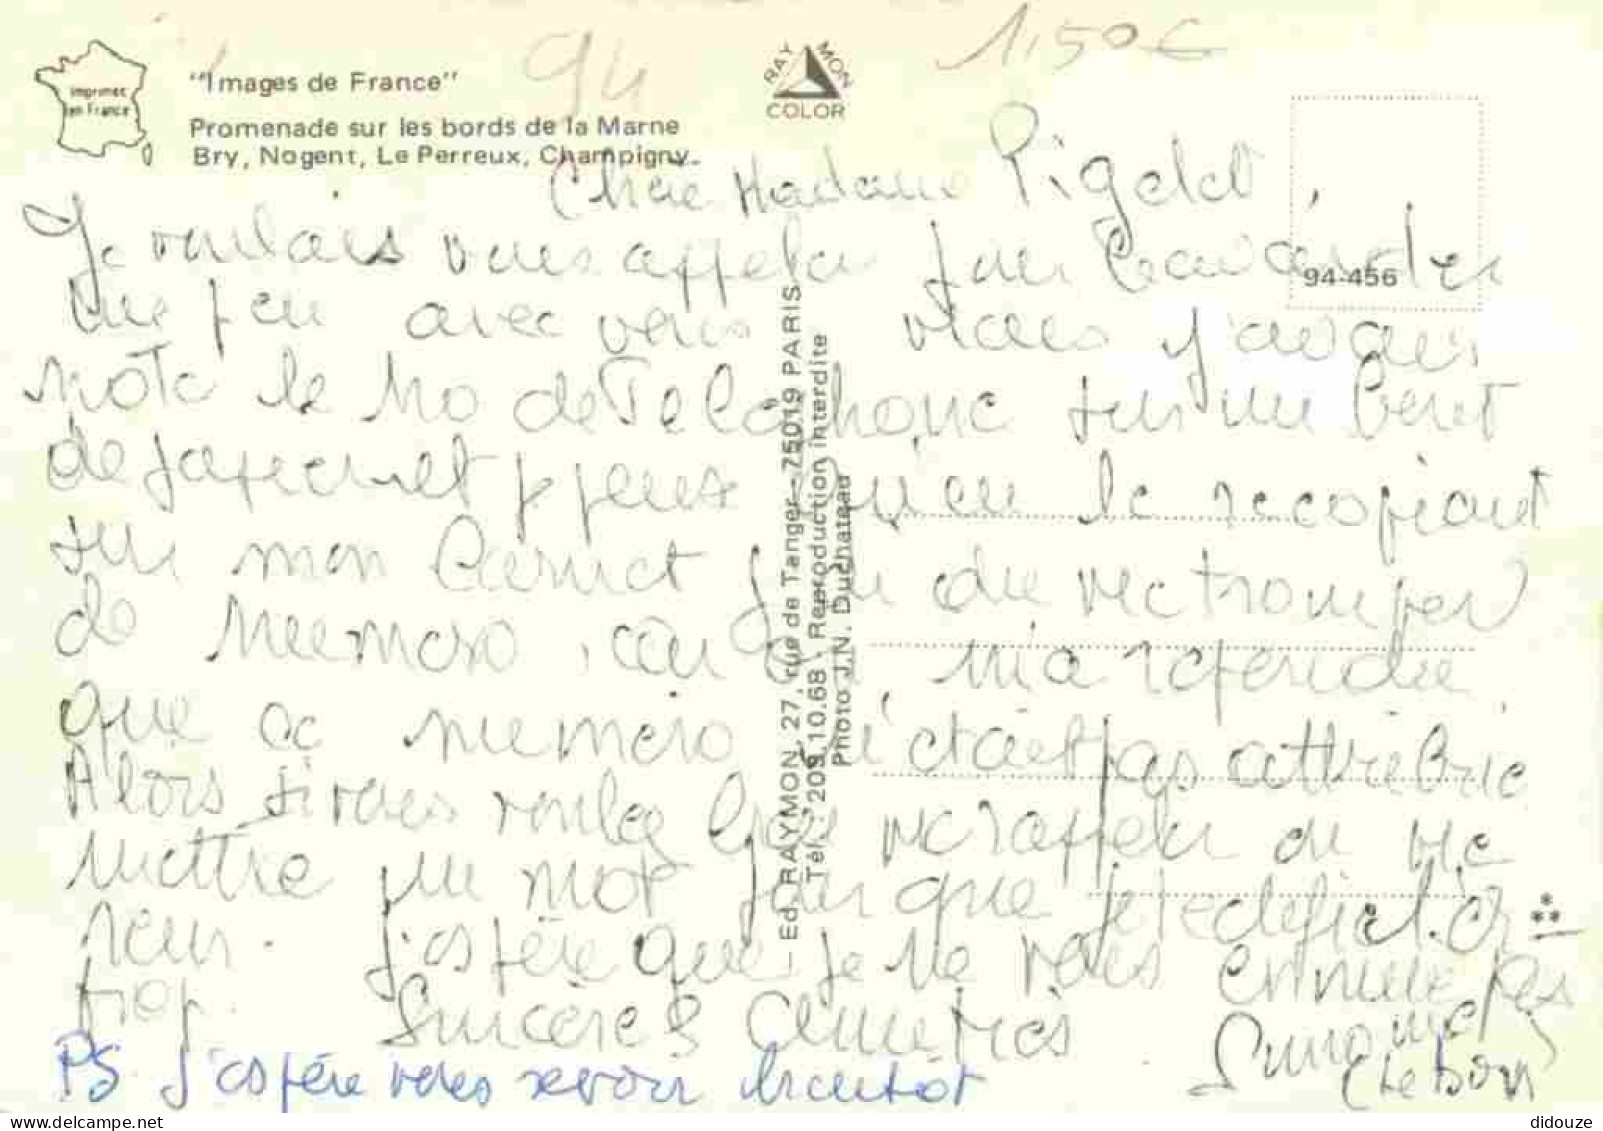 94
1,50€
Imprimé
en France
"Images de France"
Promenade sur les bords de la Marne
Bry, Nogent, Le Perreux, Champigny.
RAYMON
COLOR
94-456
Chère Madame Pigelet,
Je voulais vous appeler pour bavarder
une peu avec vous mais j'avais
noté le No de Téléphone sur un
de et je peux en le recopiant
sur mon Carnet j'ai du me tromper
de numero, car on m'a répondu
que ce numero n'était pas attribué
Alors si vous voulez me rappeler ou me
mettre un mot pour que je
J'espère que je ne vous ennuie pas
trop. Sincères Amitiés Simone
PS. J'espère vous revoir bientôt
Ed. RAYMON, 27, rue de Tanger - 75019 PARIS
Tél.: 209.10.68 - Reproduction interdite
Photo J.N. Duchateau
didouze